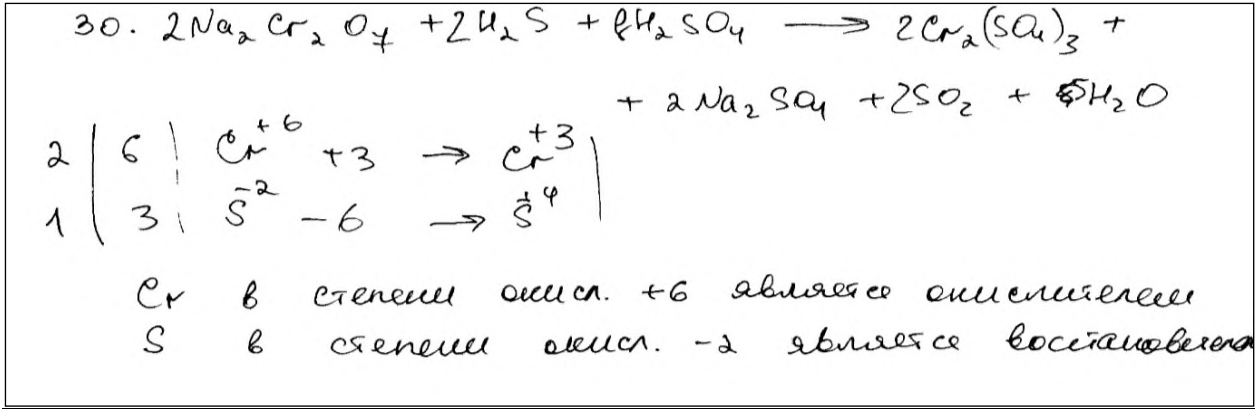 30. 2Na₂Cr₂O₇ + 2H₂S + 8H₂SO₄ → 2Cr₂(SO₄)₃ +
+ 2Na₂SO₄ + 2SO₂ + H₂O
2 | 6 | Cr⁺⁶ +3 → Cr⁺³ |
1 | 3 | S⁻² - 6 → S⁺⁴ |
Cr в степени окисл. +6 является окислителем
S в степени окисл. -2 является